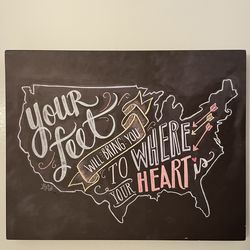 Your
feet
WILL BRING YOU
TO
YOUR
WHERE
HEART is